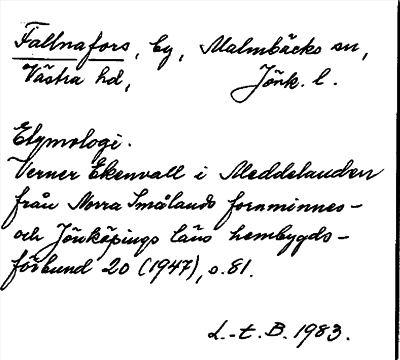 Fallnafors, by, Malmbäcks sn,
Västra hd, Jönk. l.
Etymologi.
Verner Ekenvall i Meddelanden
från Norra Smålands fornminnes-
och Jönköpings läns hembygds-
förbund 20 (1947), s. 81.
L.-t. B. 1983.